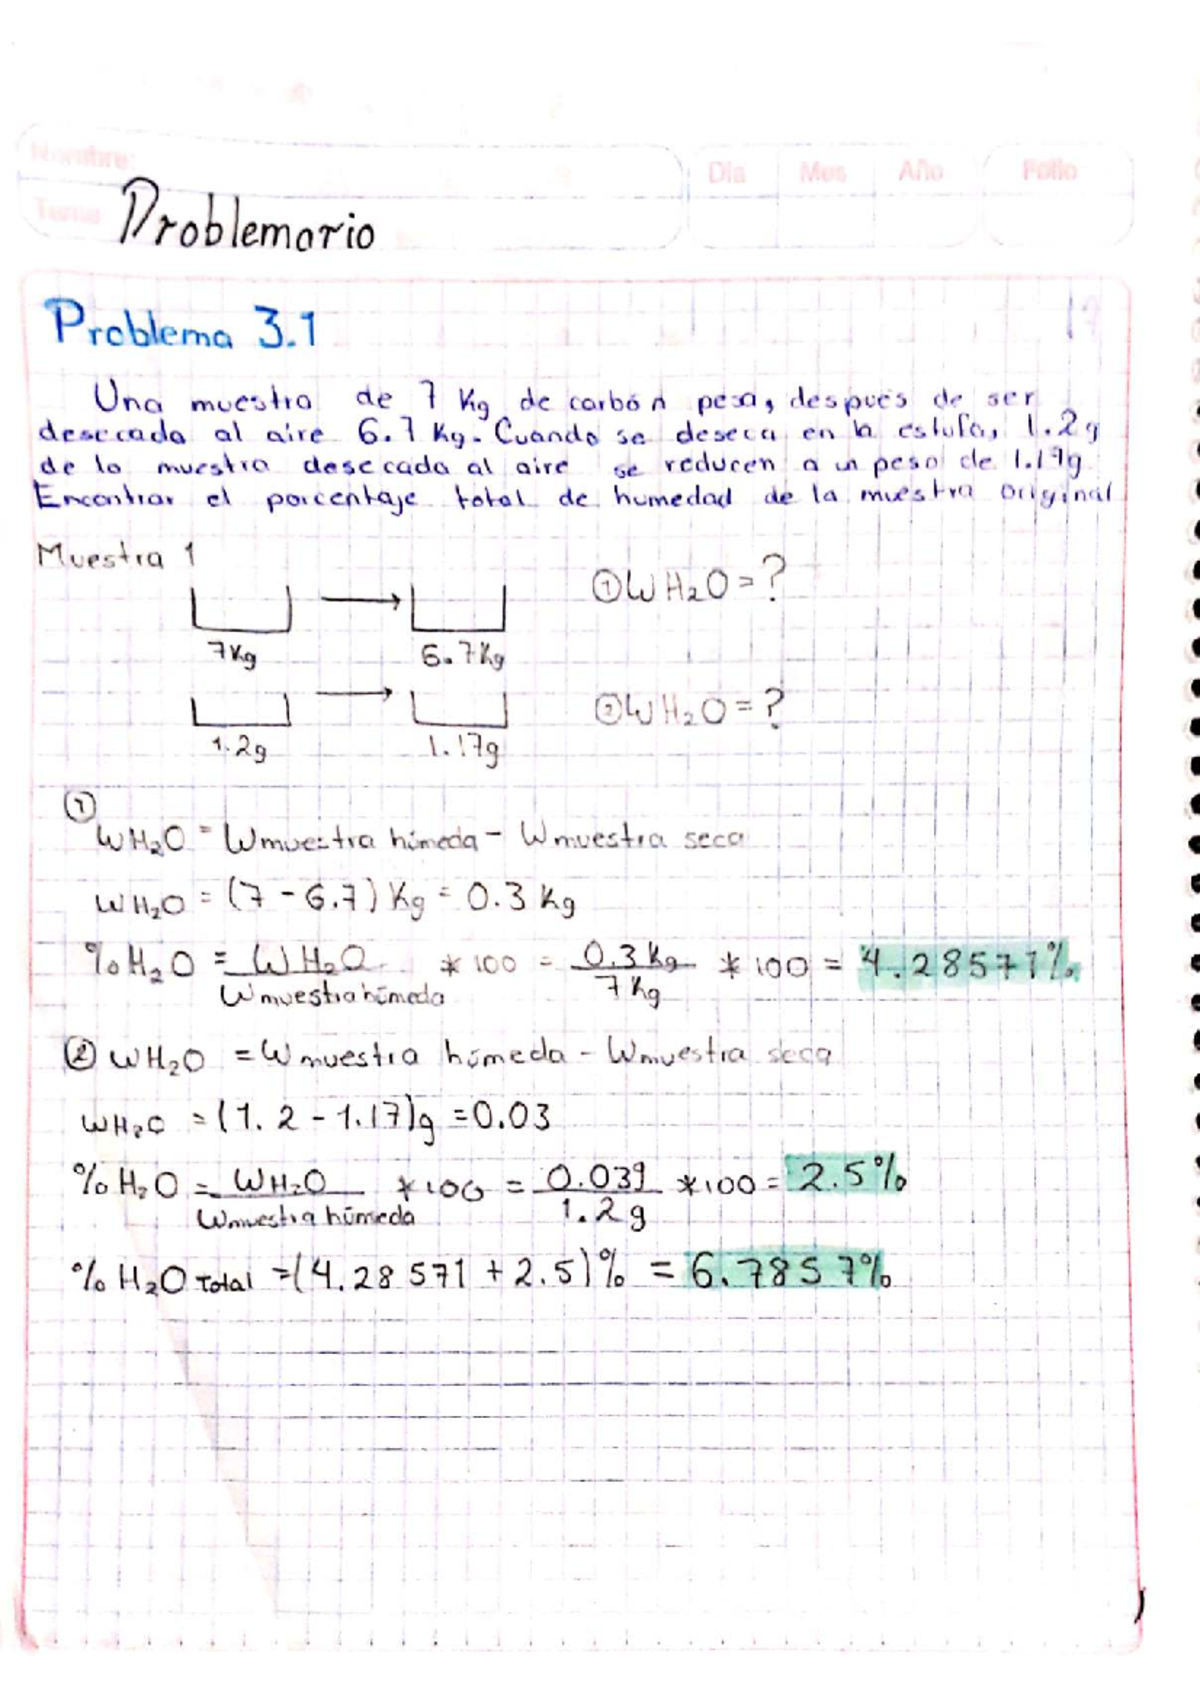 Nombre:
Tema
Dia Mes Año Folio
Problemario
Problema 3.1
Una muestra de 7 Kg de carbón pesa, después de ser
desecada al aire 6.7 Kg. Cuando se deseca en la estufa, 1.2g
de la muestra desecada al aire se reducen a un peso de 1.17g
Encontrar el porcentaje total de humedad de la muestra original
Muestra 1
① WH₂O = ?
7Kg 6.7Kg
② WH₂O = ?
1.2g 1.17g
①
WH₂O = Wmuestra húmeda - Wmuestra seca
WH₂O = (7 - 6.7) Kg = 0.3 Kg
%H₂O = WH₂O / Wmuestra húmeda * 100 = 0.3 Kg / 7 Kg * 100 = 4.28571%
② WH₂O = Wmuestra húmeda - Wmuestra seca
WH₂O = (1.2 - 1.17)g = 0.03
%H₂O = WH₂O / Wmuestra húmeda * 100 = 0.03g / 1.2g * 100 = 2.5%
% H₂O Total = (4.28571 + 2.5)% = 6.7857%